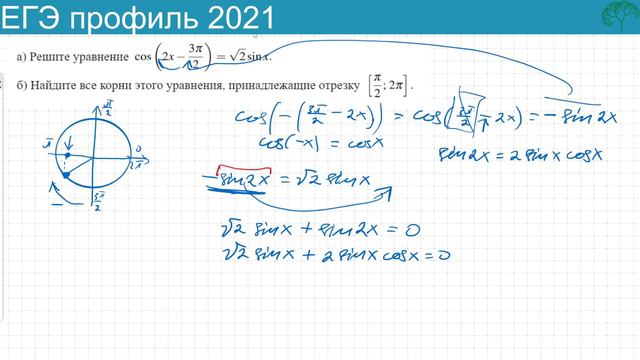 ЕГЭ профиль 2021
а) Решите уравнение cos(2x − 3π/2) = √2 sin x.
б) Найдите все корни этого уравнения, принадлежащие отрезку [π/2; 2π].
cos(−(3π/2 − 2x)) = cos(3π/2 − 2x) = − sin 2x
cos(−x) = cos x
sin 2x = 2 sin x cos x
π/2
π
0
2π
3π/2
− sin 2x = √2 sin x
√2 sin x + sin 2x = 0
√2 sin x + 2 sin x cos x = 0